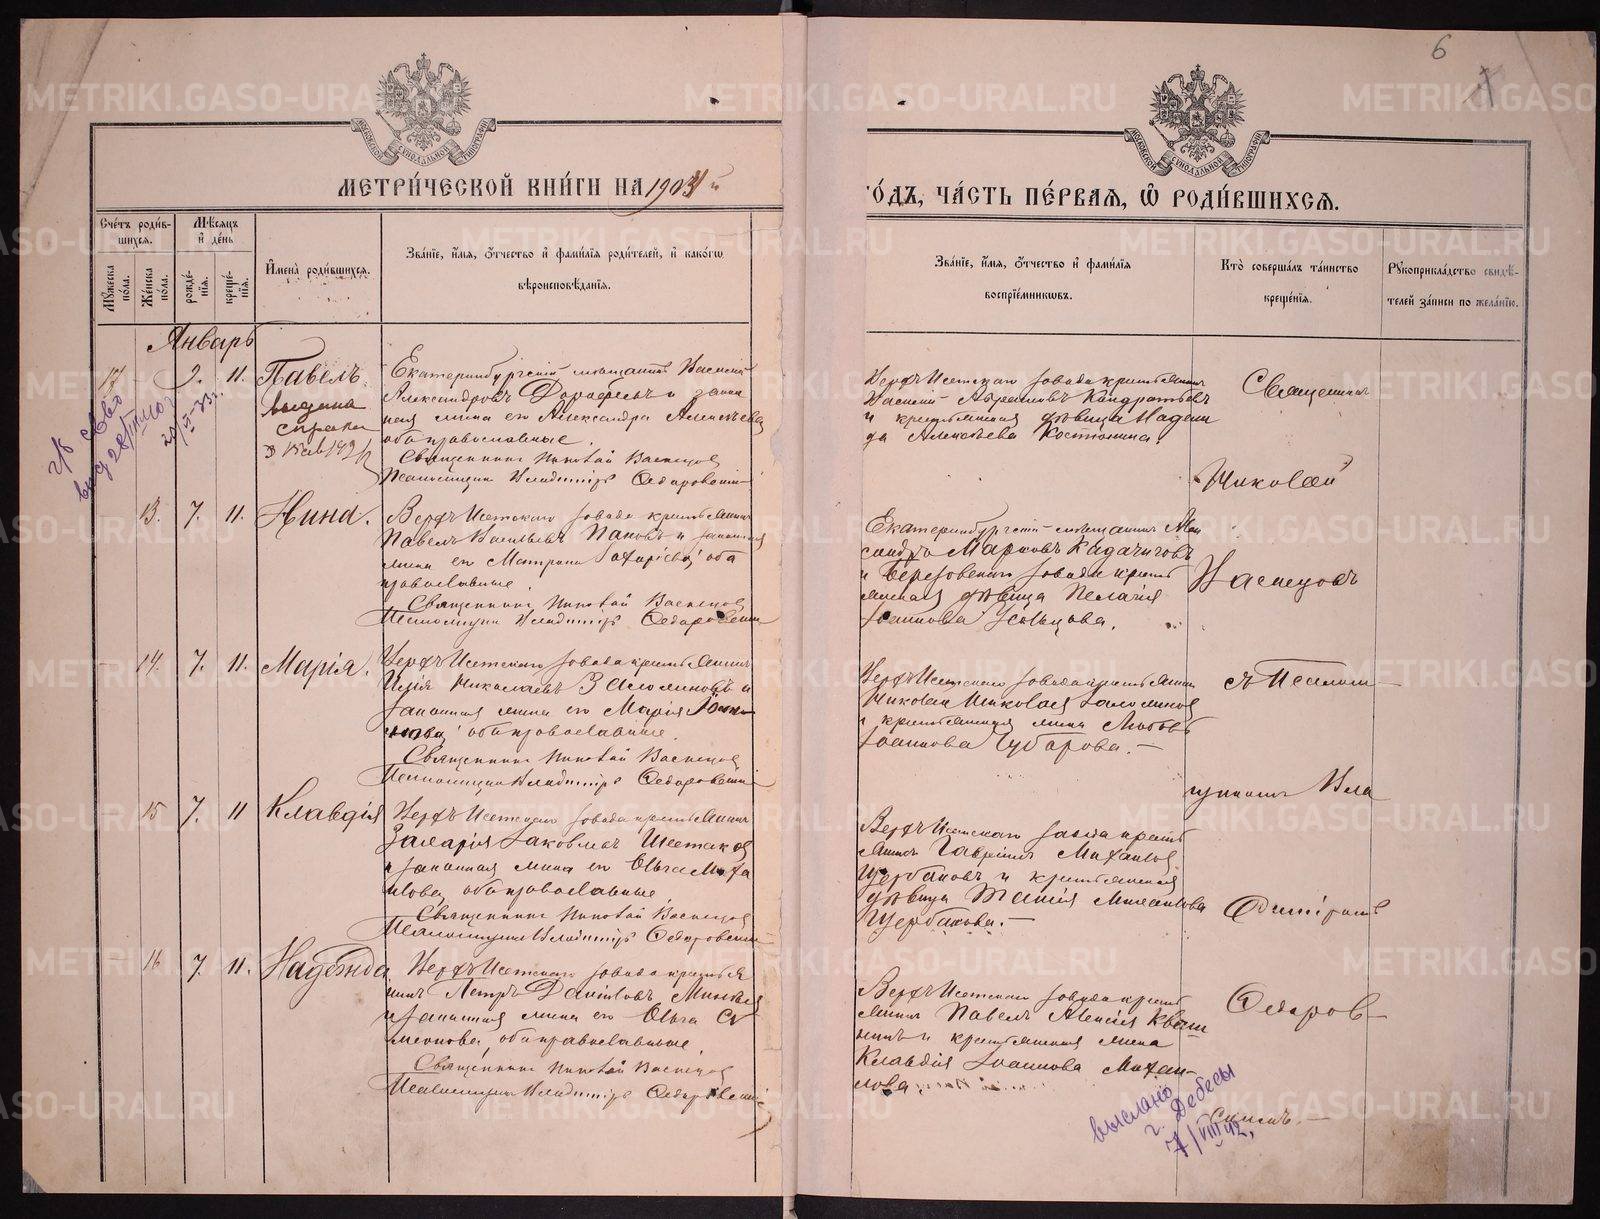 6
МЕТРИ́ЧЕСКОЙ КНИ́ГИ НА 1903й
ГО́ДЪ, ЧА́СТЬ ПЕ́РВАЯ, Ѡ РОДИ́ВШИХСЯ.
Сче́тъ роди́вшихся.
Му́жеска по́ла.
Же́нска по́ла.
Мѣ́сяцъ и де́нь
рожде́нія.
креще́нія.
Имена̀ роди́вшихся.
Зва́ніе, и́мя, о́тчество и фами́лія роди́телей, и како́гѡ
вѣроисповѣ́данія.
Зва́ніе, и́мя, о́тчество и фами́лія
воспріе́мникѡвъ.
Кто̀ соверша́лъ та́инство
креще́нія.
Рꙋкоприкла́дство свидѣ́-
телей за́писи по жела́нію.
Январь
9. 11. Павелъ.
Екатеринбургскій мѣщанинъ Василій
Александровъ и закон
ная жена его Александра Алексѣева
оба православные.
Священникъ Николай Васнецов
Псаломщикъ Владимір Ѳедоровскій
Верхъ Исетскаго завода крестьянин
Василій Абрамовъ Кондратьевъ
и крестьянская дѣвица Надеж
да Алексѣева Костюнина.
Священник
Николай
13. 7. 11. Нина.
Верхъ Исетскаго завода крестьянин
Павелъ Васильевъ Пановъ и законная
жена его Матрона Захаріева, оба
православные.
Священникъ Николай Васнецов
Псаломщик Владимір Ѳедоровскій
Екатеринбургскій мѣщанинъ Алек
сандръ Марковъ
и Березовскаго завода крест
янская дѣвица Пелагія
Іоаннова Усольцова.
Васнецовъ
14. 7. 11. Марія.
Верхъ Исетскаго завода крестьянин
Илія Николаевъ Заломиновъ и
законная жена его Марія Іоан
нова, оба православные.
Священникъ Николай Васнецов
Псаломщик Владимір Ѳедоровскій
Верхъ Исетскаго завода крестьянин
Николай Николаев
и крестьянская жена Любовь
Іоаннова Губарова.
съ Псалом-
щикомъ Вла
15 7. 11 Клавдія
Верхъ Исетскаго завода крестьянин
Захарія Іаковлевъ Шестаков
и законная жена его Ольга Миха
илова, оба православные
Священникъ Николай Васнецов
Псаломщик Владимір Ѳедоровскій
Верхъ Исетскаго завода кресть
янинъ Гавріилъ Михаилов
Щербаковъ и крестьянская
дѣвица Михаилова
Щербакова.
диміромъ
16 7. 11. Надежда
Верхъ Исетскаго завода крестья
нинъ Петръ Даниловъ
и законная жена его Ольга Си
меонова, оба православные.
Священникъ Николай Васнецов
Псаломщикъ Владимір Ѳедоровскій
Верхъ Исетскаго завода кресть
янинъ Павелъ Алексіев Кваш
нинъ и крестьянская жена
Клавдія Іоаннова Михаи-
лова.
Ѳедоров-
скимъ.
выслано
г. Дебесы
7/VIII 42.
METRIKI.GASO-URAL.RU